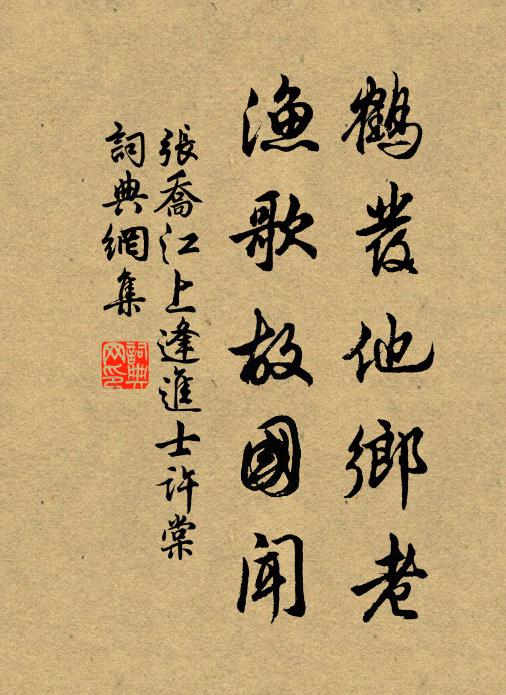 鶴發他鄉老
漁歌故國聞
張喬江上逢進士許棠
詞典網集
詞典网印